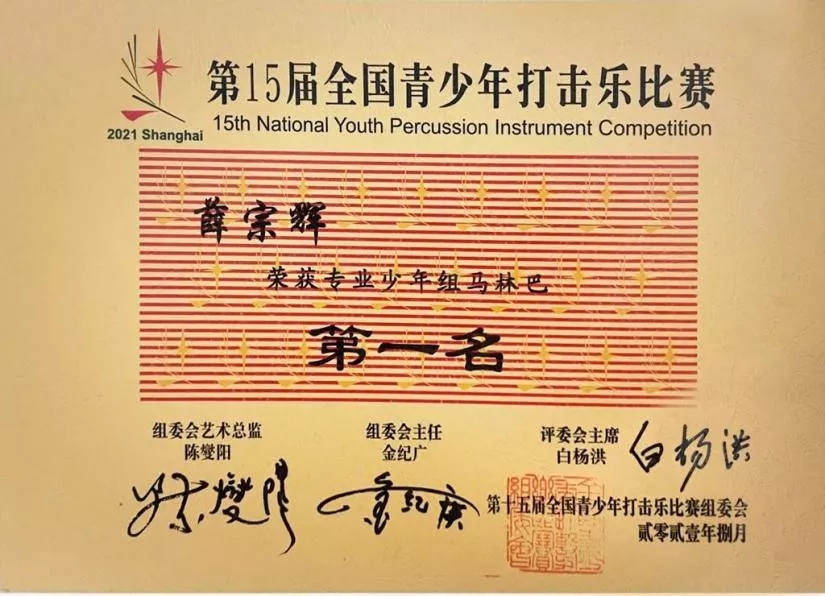 第15届全国青少年打击乐比赛
15th National Youth Percussion Instrument Competition
2021 Shanghai
薛宗辉
荣获专业少年组马林巴
第一名
组委会艺术总监
陈燮阳
陈燮阳
组委会主任
金纪广
金纪广
评委会主席
白杨洪
白杨洪
第十五届全国青少年打击乐比赛组委会
贰零贰壹年捌月